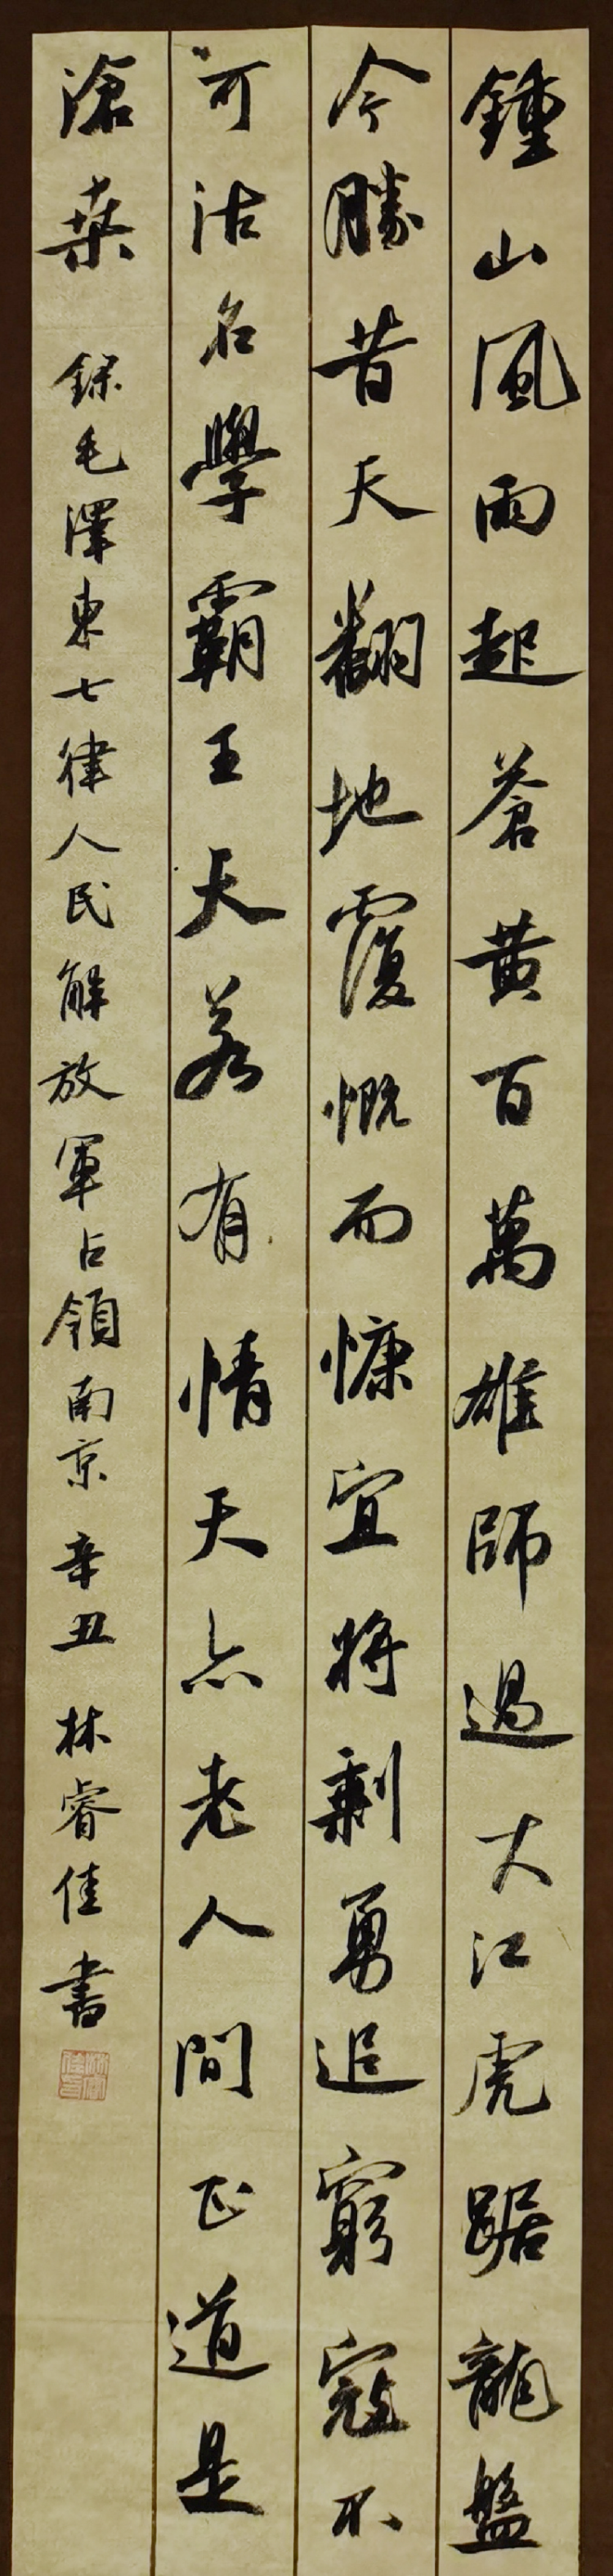 鍾山風雨起蒼黄百萬雄師過大江虎踞龍盤
今勝昔天翻地覆慨而慷宜將剩勇追窮寇不
可沽名學霸王天若有情天亦老人間正道是
滄桑 録毛澤東七律人民解放軍占領南京 辛丑 林睿佳書